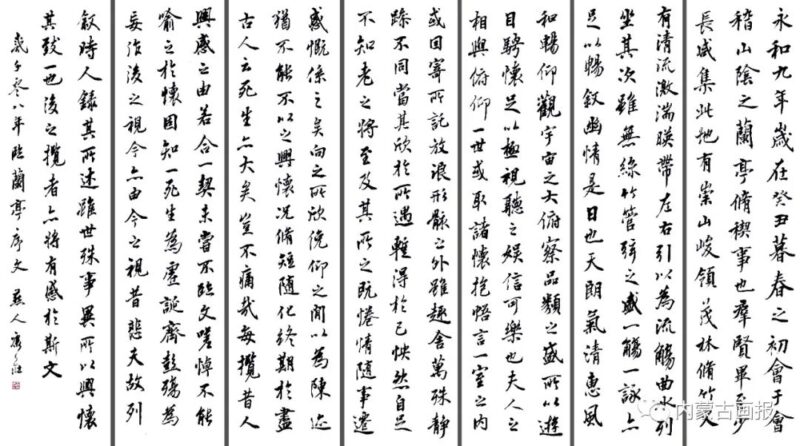 永和九年歲在癸丑暮春之初會于會
稽山陰之蘭亭脩禊事也羣賢畢至少
長咸集此地有崇山峻領茂林脩竹又
有清流激湍暎帶左右引以為流觴曲水列
坐其次雖無絲竹管弦之盛一觴一詠亦
足以暢敘幽情是日也天朗氣清惠風
和暢仰觀宇宙之大俯察品類之盛所以遊
目騁懷足以極視聽之娛信可樂也夫人之
相與俯仰一世或取諸懷抱悟言一室之內
或因寄所託放浪形骸之外雖趣舍萬殊靜
躁不同當其欣於所遇暫得於己怏然自足
不知老之將至及其所之既惓情隨事遷
感慨係之矣向之所欣俛仰之間以為陳迹
猶不能不以之興懷況脩短隨化終期於盡
古人云死生亦大矣豈不痛哉每攬昔人
興感之由若合一契未嘗不臨文嗟悼不能
喻之於懷固知一死生為虛誕齊彭殤為
妄作後之視今亦由今之視昔悲夫故列
敘時人錄其所述雖世殊事異所以興懷
其致一也後之攬者亦將有感於斯文
貳千零八年臨蘭亭序文
内蒙古画报